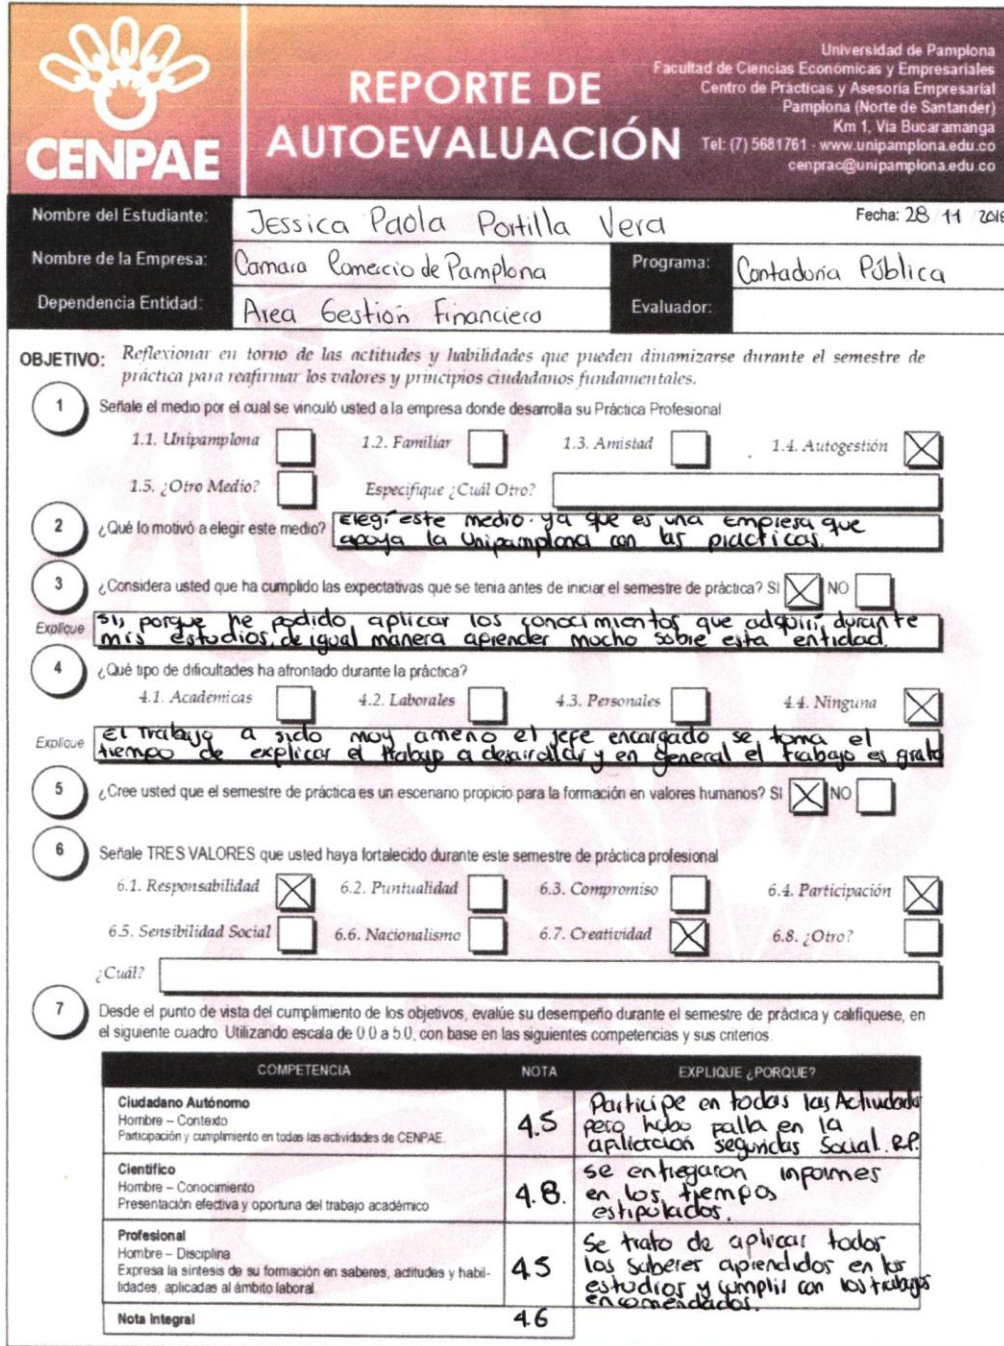 CENPAE
REPORTE DE
AUTOEVALUACIÓN
Universidad de Pamplona
Facultad de Ciencias Económicas y Empresariales
Centro de Prácticas y Asesoria Empresarial
Pamplona (Norte de Santander)
Km 1, Via Bucaramanga
Tel: (7) 5681761 - www.unipamplona.edu.co
cenprac@unipamplona.edu.co
Nombre del Estudiante: Jessica Paola Portilla Vera Fecha: 28 11 2018
Nombre de la Empresa: Camara Comercio de Pamplona Programa: Contaduria Pública
Dependencia Entidad: Area Gestión Financiera Evaluador:
OBJETIVO: Reflexionar en torno de las actitudes y habilidades que pueden dinamizarse durante el semestre de
práctica para reafirmar los valores y principios ciudadanos fundamentales.
1 Señale el medio por el cual se vinculó usted a la empresa donde desarrolla su Práctica Profesional
1.1. Unipamplona 1.2. Familiar 1.3. Amistad 1.4. Autogestión X
1.5. ¿Otro Medio? Especifique ¿Cuál Otro?
2 ¿Qué lo motivó a elegir este medio? Elegí este medio ya que es una empresa que
apoya la Unipamplona con las practicas.
3 ¿Considera usted que ha cumplido las expectativas que se tenia antes de iniciar el semestre de práctica? SI X NO
Explique Si, porque he podido aplicar los conocimientos que adquirí durante
mis estudios, de igual manera aprender mucho sobre esta entidad.
4 ¿Qué tipo de dificultades ha afrontado durante la práctica?
4.1. Académicas 4.2. Laborales 4.3. Personales 4.4. Ninguna X
Explique El trabajo a sido muy ameno el jefe encargado se toma el
tiempo de explicar el trabajo a desarrollar y en general el trabajo es grato
5 ¿Cree usted que el semestre de práctica es un escenario propicio para la formación en valores humanos? SI X NO
6 Señale TRES VALORES que usted haya fortalecido durante este semestre de práctica profesional
6.1. Responsabilidad X 6.2. Puntualidad 6.3. Compromiso 6.4. Participación X
6.5. Sensibilidad Social 6.6. Nacionalismo 6.7. Creatividad X 6.8. ¿Otro?
¿Cuál?
7 Desde el punto de vista del cumplimiento de los objetivos, evalúe su desempeño durante el semestre de práctica y califíquese, en
el siguiente cuadro. Utilizando escala de 0.0 a 5.0, con base en las siguientes competencias y sus criterios
COMPETENCIA NOTA EXPLIQUE ¿PORQUE?
Ciudadano Autónomo
Hombre – Contexto
Participación y cumplimiento en todas las actividades de CENPAE.
4.5
Participe en todas las Actividades
pero hubo falla en la
aplicación seguridas Social. R.P.
Científico
Hombre – Conocimiento
Presentación efectiva y oportuna del trabajo académico
4.8.
se entregaron informes
en los tiempos
estipulados.
Profesional
Hombre – Disciplina
Expresa la síntesis de su formación en saberes, actitudes y habi-
lidades, aplicadas al ámbito laboral
4.5
Se trato de aplicar todos
los saberes aprendidos en los
estudios y cumplir con los trabajos
encomendados.
Nota Integral 4.6